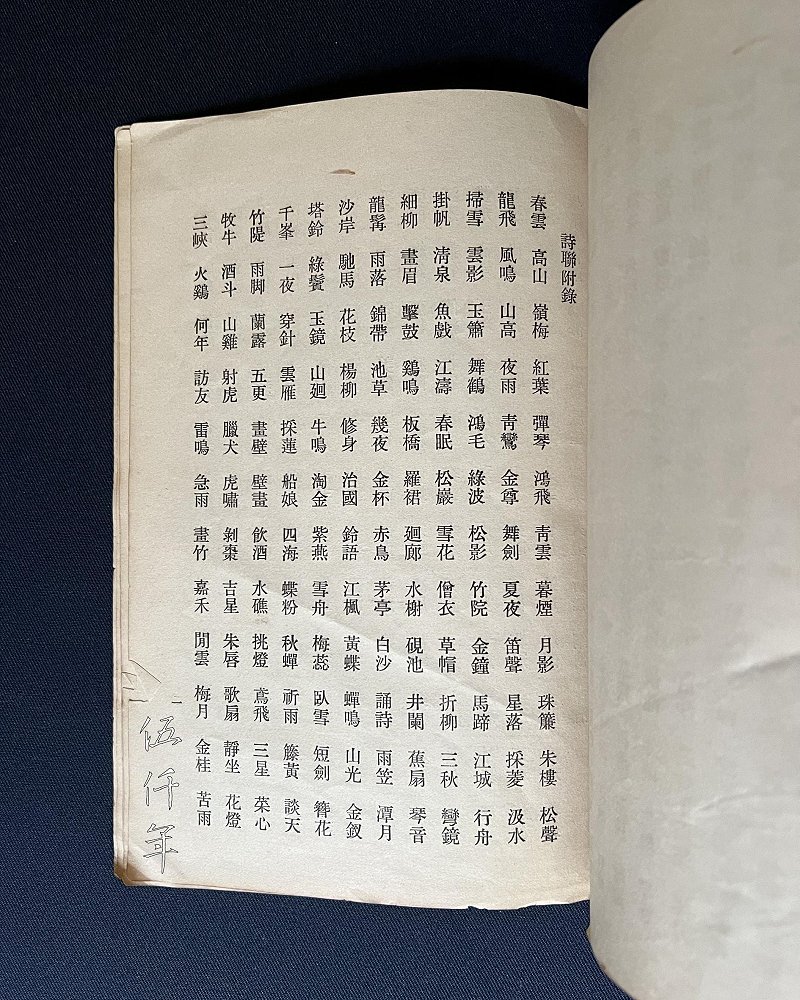 詩聯附錄
春雲 高山 嶺梅 紅葉 彈琴 鴻飛 青雲 暮煙 月影 珠簾 朱樓 松聲
龍飛 風鳴 山高 夜雨 青鸞 金尊 舞劍 夏夜 笛聲 星落 採菱 汲水
掃雪 雲影 玉簫 舞鶴 鴻毛 綠波 松影 竹院 金鐘 馬蹄 江城 行舟
掛帆 清泉 魚戲 江濤 春眠 松巖 雪花 僧衣 草帽 折柳 三秋 鸞鏡
細柳 畫眉 擊鼓 鷄鳴 板橋 羅裙 廻廊 水榭 硯池 井闌 蕉扇 琴音
龍髯 雨落 錦帶 池草 幾夜 金杯 赤鳥 茅亭 白沙 誦詩 雨笠 潭月
沙岸 馳馬 花枝 楊柳 修身 治國 鈴語 江楓 黃蝶 蟬鳴 山光 金釵
塔鈴 綠鬢 玉鏡 山廻 牛鳴 淘金 紫燕 雪舟 梅蕊 臥雪 短劍 簪花
千峯 一夜 穿針 雲雁 採蓮 船娘 四海 蝶粉 秋蟬 祈雨 籐黃 談天
竹隄 雨脚 蘭露 五更 畫壁 壁畫 飲酒 水礁 挑燈 鳶飛 三星 菜心
牧牛 酒斗 山雞 射虎 臘犬 虎嘯 剝棗 吉星 朱唇 歌扇 靜坐 花燈
三峽 火鷄 何年 訪友 雷鳴 急雨 畫竹 嘉禾 閒雲 梅月 金桂 苦雨
一
伍仟年